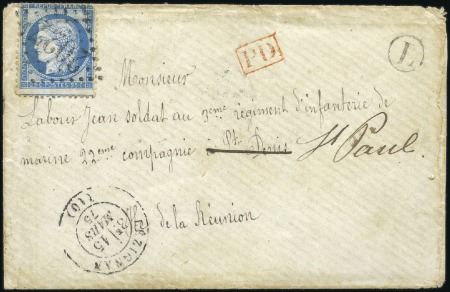 REPUB. FRANC.
PD
L
Monsieur
Labour Jean soldat au 3eme régiment d'infanterie de
marine 22eme compagnie à St Denis St Paul.
de la Réunion
ZIGNAN
3E 15
MARS
75
(10)